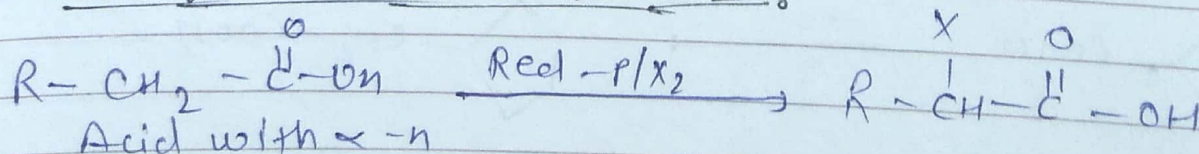 X
O O
R - CH2 - C - OH Red - P/X2 R - CH - C - OH
Acid with α - H